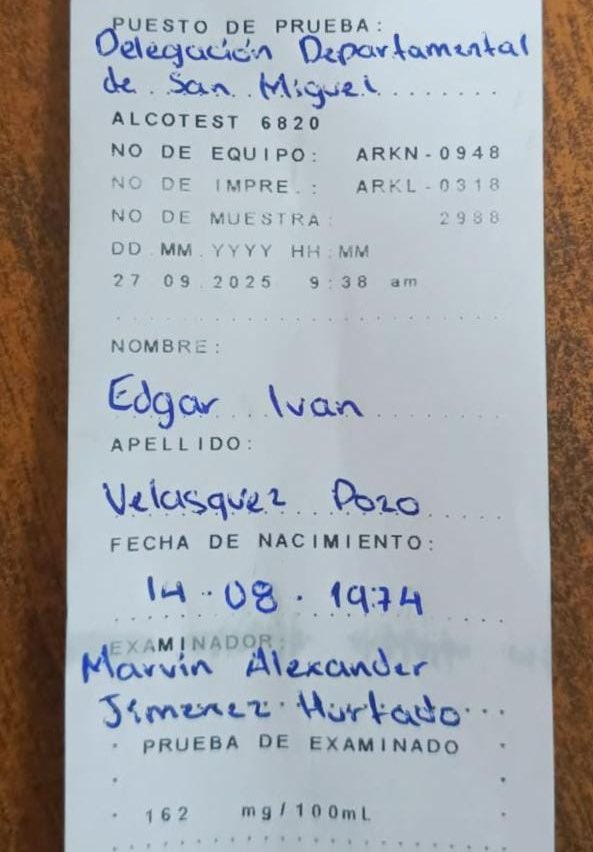 PUESTO DE PRUEBA:
Delegación Departamental
de San Miguel
ALCOTEST 6820
NO DE EQUIPO: ARKN-0948
NO DE IMPRE.: ARKL-0318
NO DE MUESTRA: 2988
DD.MM.YYYY HH:MM
27.09.2025 9:38 am
NOMBRE:
Edgar Ivan
APELLIDO:
Velasquez Pozo
FECHA DE NACIMIENTO:
14.08.1974
EXAMINADOR:
Marvin Alexander
Jimenez Hurtado
PRUEBA DE EXAMINADO
162 mg/100mL